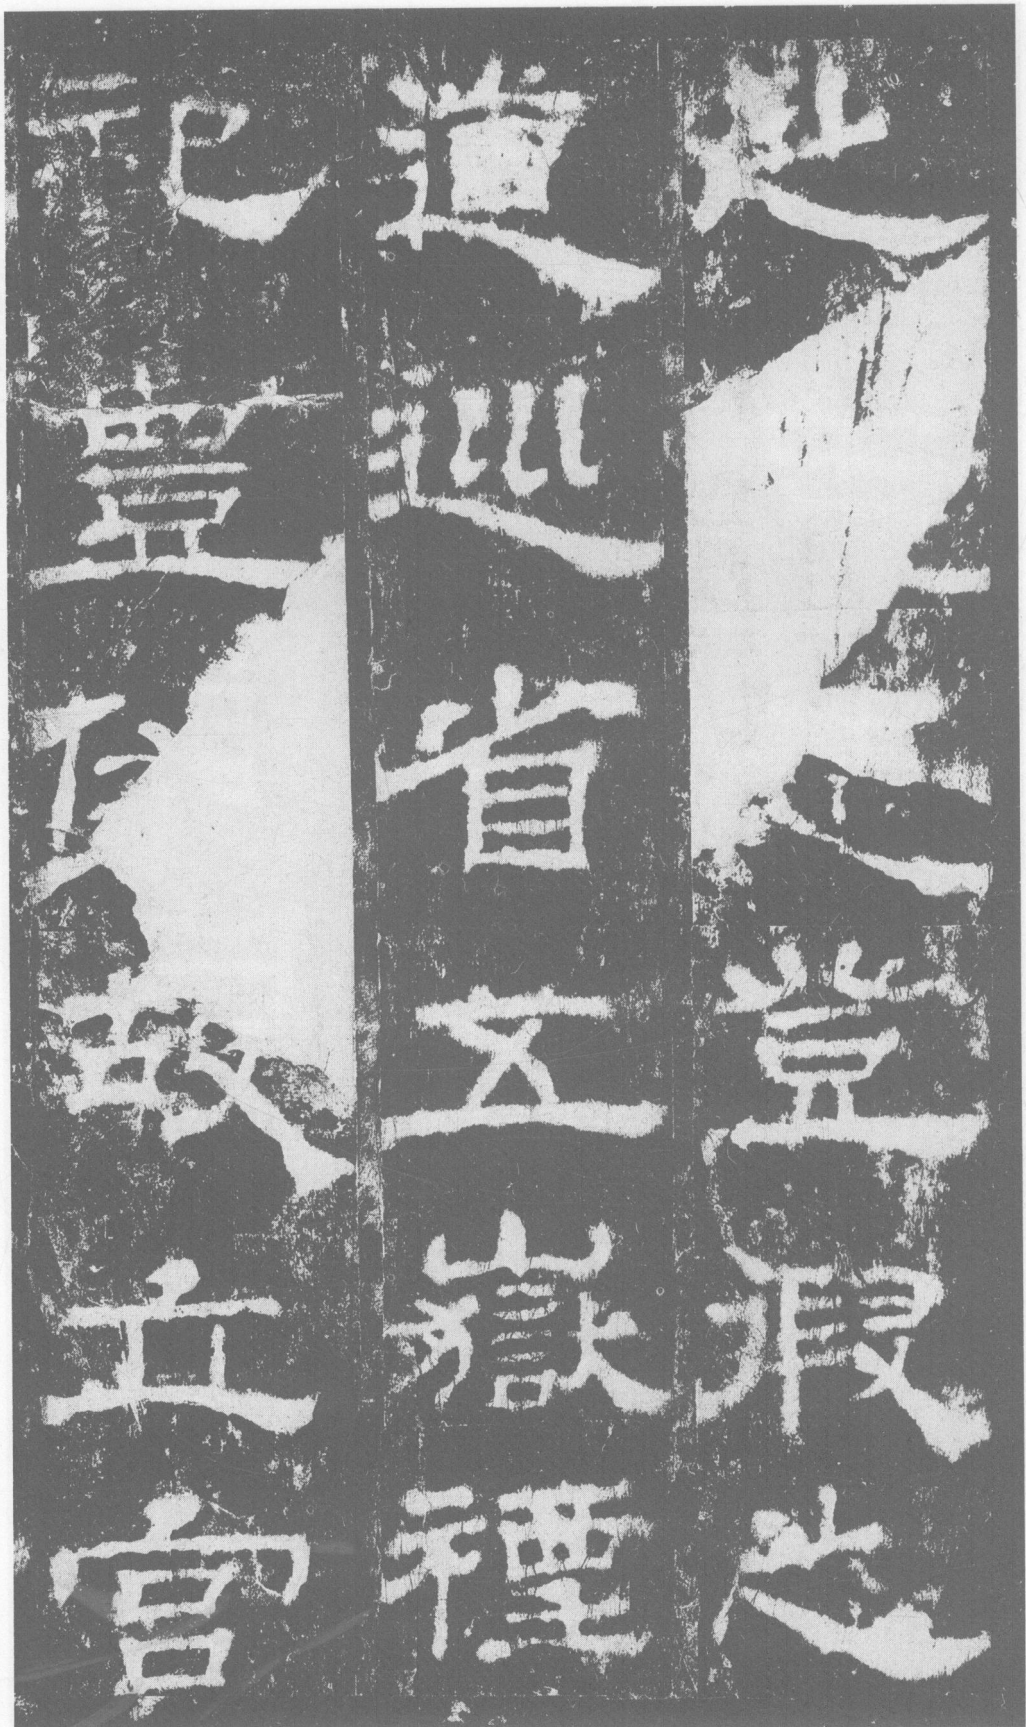 之登徦之
道巡省五嶽禋
祀豐故立宮